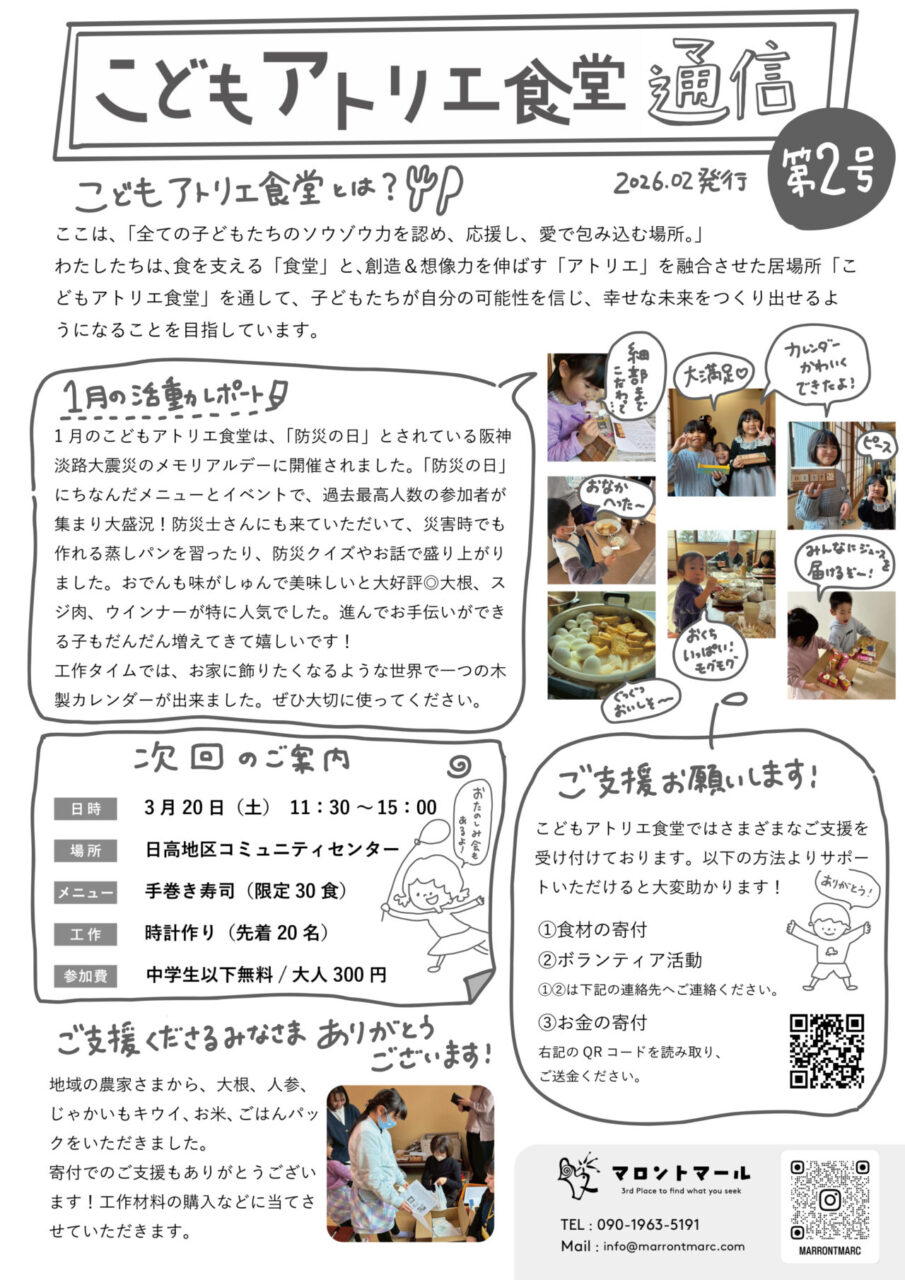 こどもアトリエ食堂 通信
第2号
2026.02発行
こどもアトリエ食堂とは?
ここは、「全ての子どもたちのソウゾウ力を認め、応援し、愛で包み込む場所。」
わたしたちは、食を支える「食堂」と、創造&想像力を伸ばす「アトリエ」を融合させた居場所「こ
どもアトリエ食堂」を通して、子どもたちが自分の可能性を信じ、幸せな未来をつくり出せるよ
うになることを目指しています。
1月の活動レポート
1月のこどもアトリエ食堂は、「防災の日」とされている阪神
淡路大震災のメモリアルデーに開催されました。「防災の日」
にちなんだメニューとイベントで、過去最高人数の参加者が
集まり大盛況!防災士さんにも来ていただいて、災害時でも
作れる蒸しパンを習ったり、防災クイズやお話で盛り上がり
ました。おでんも味がしゅんで美味しいと大好評◎大根、ス
ジ肉、ウインナーが特に人気でした。進んでお手伝いができ
る子もだんだん増えてきて嬉しいです!
工作タイムでは、お家に飾りたくなるような世界で一つの木
製カレンダーが出来ました。ぜひ大切に使ってください。
細部まで
こだわって
大満足♡
カレンダー
かわいく
できたよ!
ピース
おなか
へった〜
みんなにジュースを
届けるぞー!
おくち
いっぱい!
モグモグ
ぐつぐつ
おいしそ〜
次回のご案内
日時 3月20日(土) 11:30〜15:00
場所 日高地区コミュニティセンター
メニュー 手巻き寿司(限定30食)
工作 時計作り(先着20名)
参加費 中学生以下無料/大人300円
おたのしみ会も
あるよ!
ご支援お願いします!
こどもアトリエ食堂ではさまざまなご支援を
受け付けております。以下の方法よりサポー
トいただけると大変助かります!
ありがとう!
①食材の寄付
②ボランティア活動
①②は下記の連絡先へご連絡ください。
③お金の寄付
右記のQRコードを読み取り、
ご送金ください。
ご支援くださるみなさま ありがとう
ございます!
地域の農家さまから、大根、人参、
じゃかいもキウイ、お米、ごはんパッ
クをいただきました。
寄付でのご支援もありがとうござい
ます!工作材料の購入などに当てさ
せていただきます。
マロントマール
3rd Place to find what you seek
TEL : 090-1963-5191
Mail : info@marrontmarc.com
MARRONTMARC